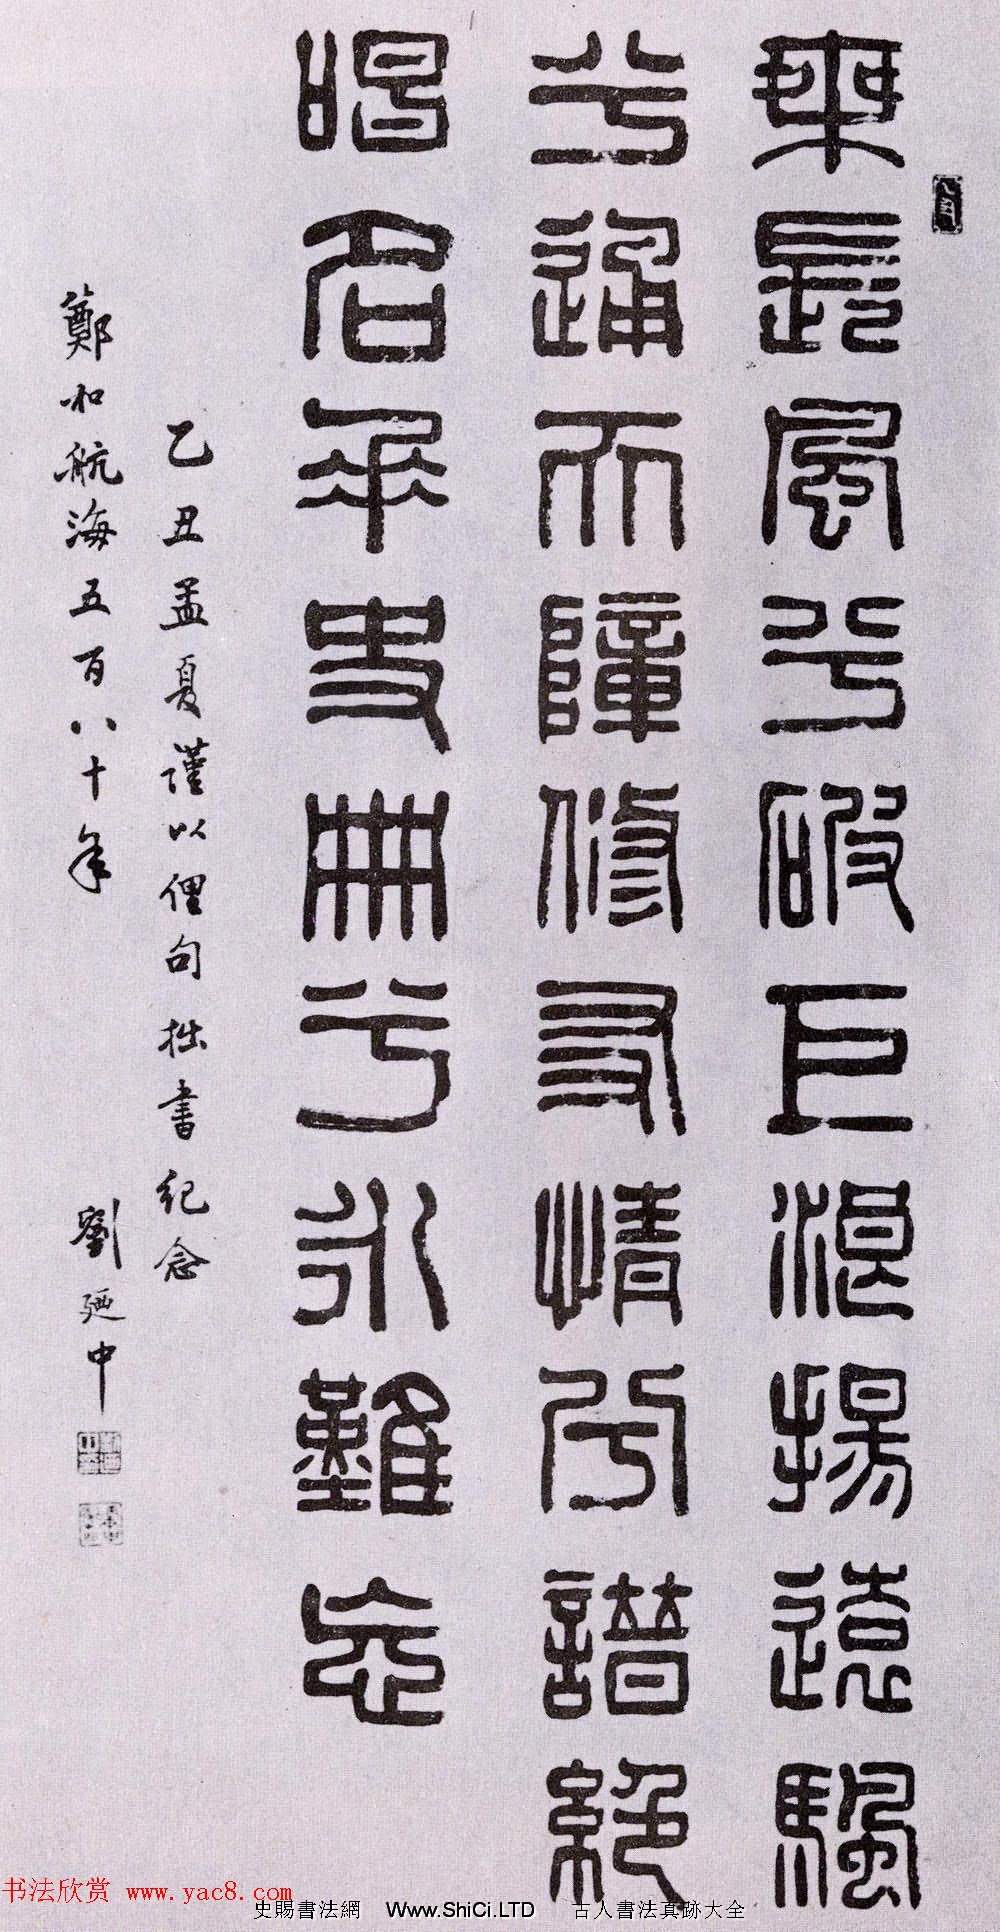 乘長風兮破巨浪揚遠颿
兮通天障修友情兮譜絕
唱名垂史冊兮永難忘
乙丑孟夏謹以俚句拙書紀念
鄭和航海五百八十年 劉廼中
乙丑
书法欣赏 www.yac8.com
史賜書法網 Www.ShiCi.LTD 古人書法真跡大全